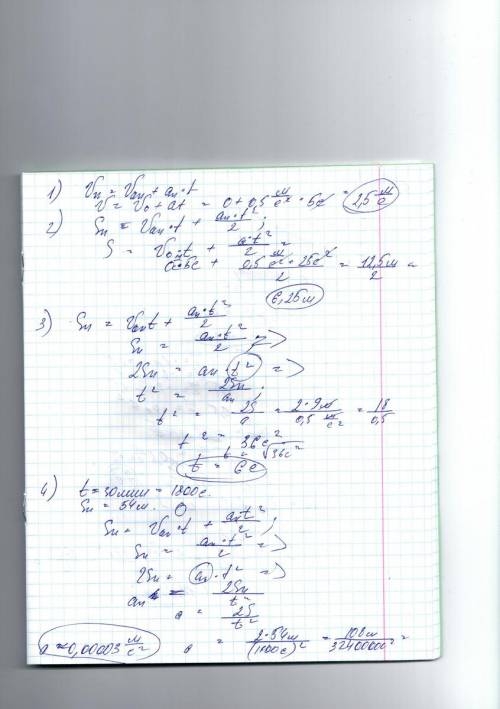 1) Vx = V₀x + aₓ·t
V = V₀ + at = 0 + 0,5 м/с² · 5с = 2,5 м/с
2) Sx = V₀x·t + aₓ·t²/2 ;
S = V₀·t + a·t²/2 =
0·5с + 0,5 м/с² · 25с²/2 = 12,5м/2 =
6,25м
3) Sx = V₀xt + aₓ·t²/2
Sx = aₓ·t²/2 =>
2Sx = aₓ·t² =>
t² = 2Sx/aₓ ;
t² = 2S/a = 2·9м/0,5 м/с² = 18/0,5
t² = 36с²
t = √36с²
t = 6с
4) t = 30мин = 1800с.
Sx = 54м. 0
Sx = V₀x·t + aₓt²/2 ;
Sx = aₓ·t²/2 =>
2Sx = aₓ·t² =>
aₓ = 2Sx/t²
a = 2S/t²
a = 2·54м/(1800с)² = 108м/3240000с² =
a ≈ 0,00003 м/с²